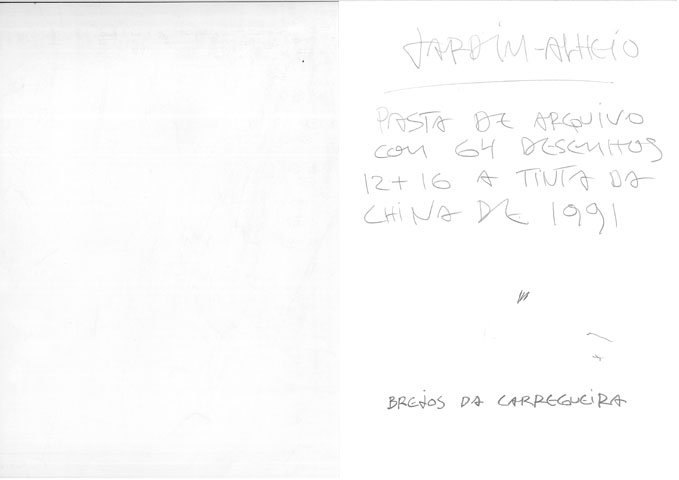 JARDIM-ALHEIO
PASTA DE ARQUIVO
COM 64 DESENHOS
12+16 A TINTA DA
CHINA DE 1991
BREJOS DA CARREGUEIRA